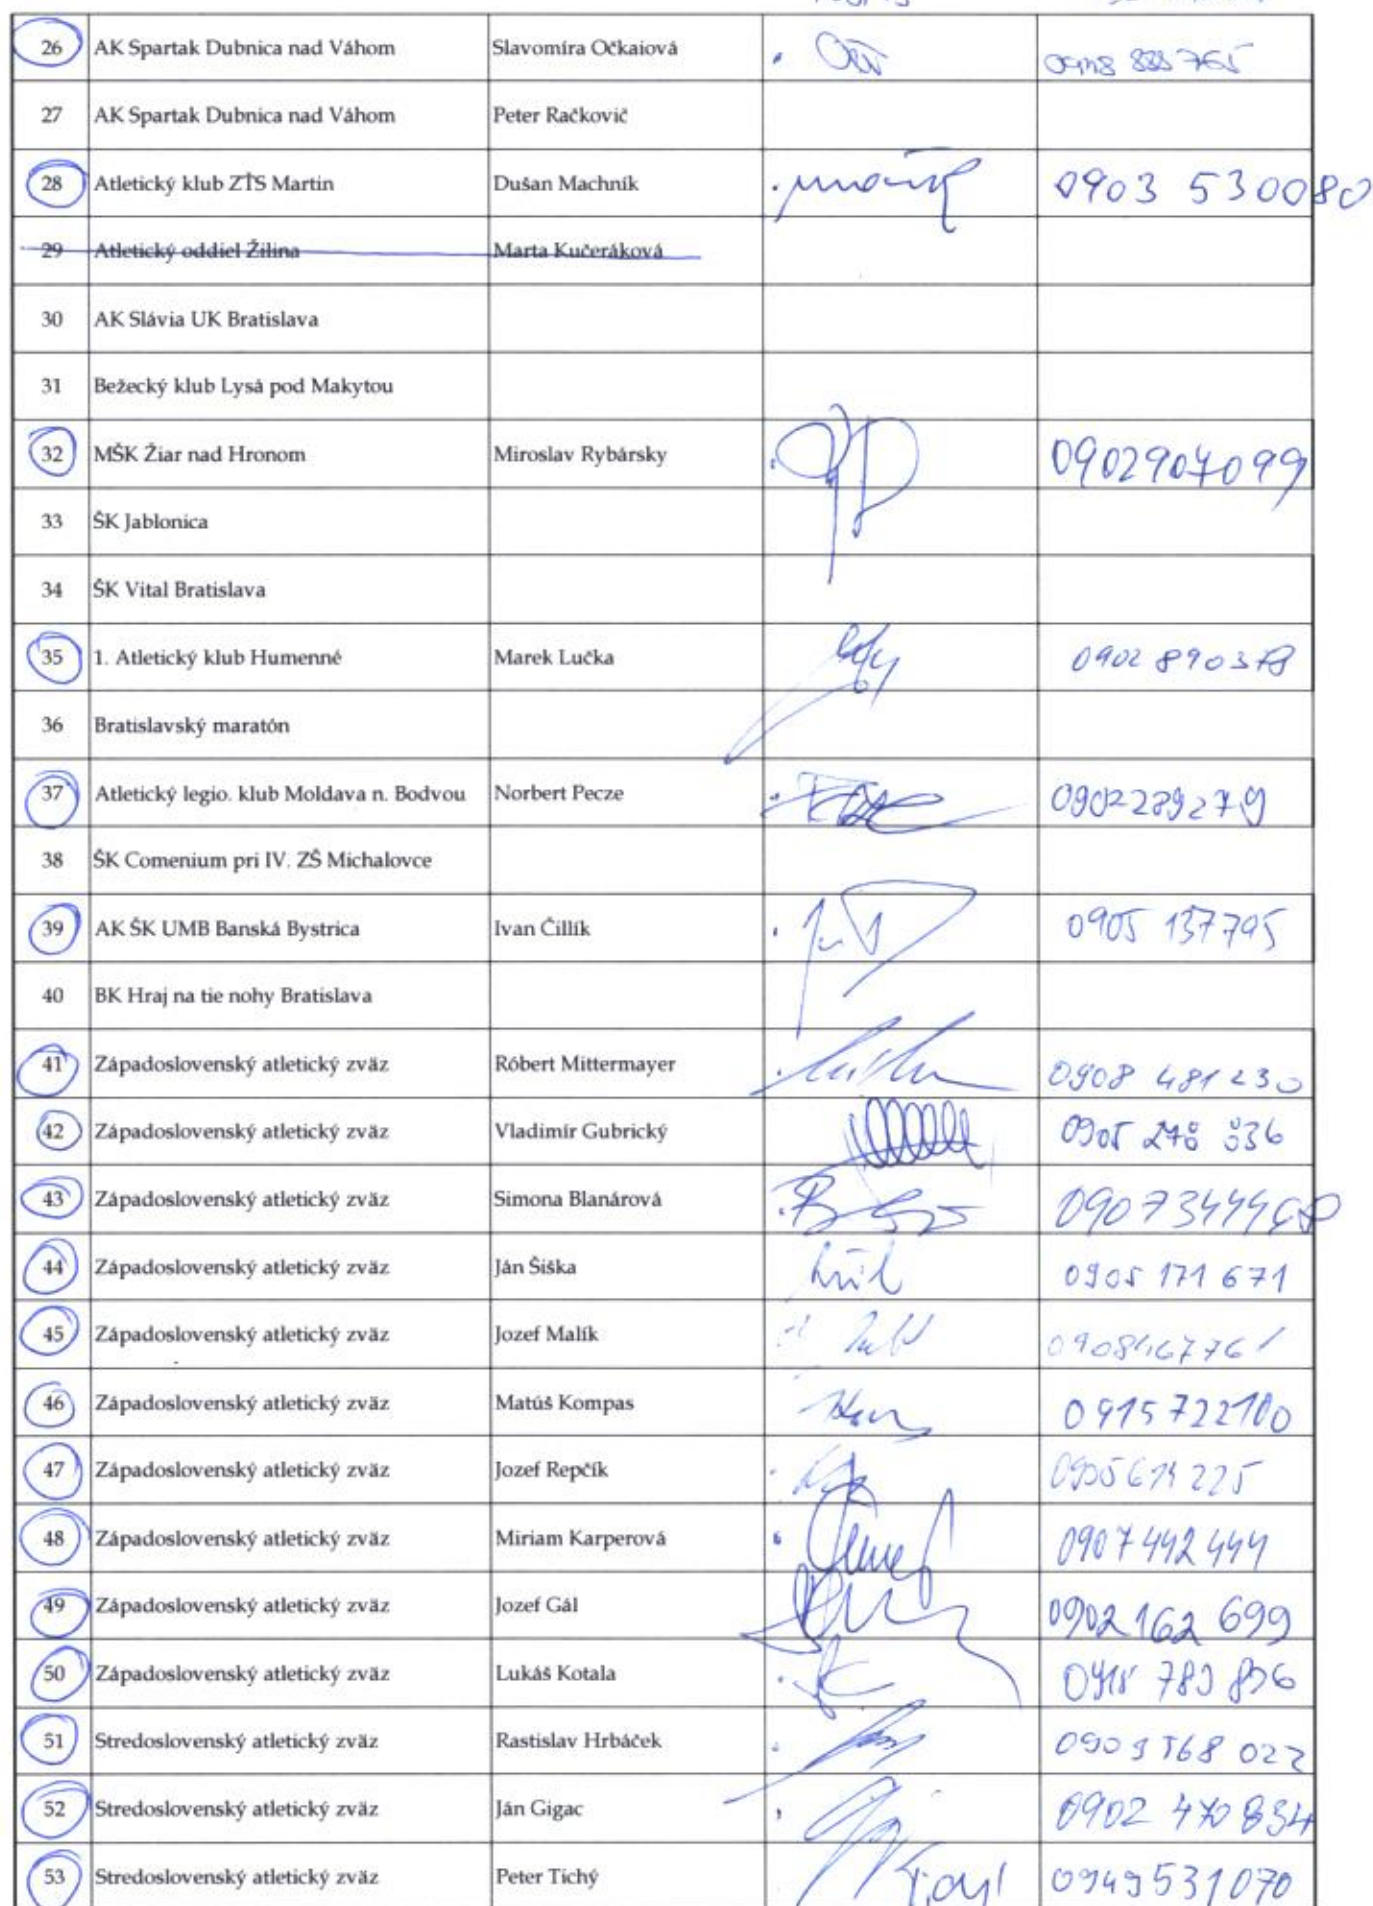 26 AK Spartak Dubnica nad Váhom Slavomíra Očkaiová
27 AK Spartak Dubnica nad Váhom Peter Račkovič
28 Atletický klub ZŤS Martin Dušan Machník 0903 530080
29 Atletický oddiel Žilina Marta Kučeráková
30 AK Slávia UK Bratislava
31 Bežecký klub Lysá pod Makytou
32 MŠK Žiar nad Hronom Miroslav Rybársky 0902904099
33 ŠK Jablonica
34 ŠK Vital Bratislava
35 1. Atletický klub Humenné Marek Lučka 0902 890378
36 Bratislavský maratón
37 Atletický legio. klub Moldava n. Bodvou Norbert Pecze 0902289279
38 ŠK Comenium pri IV. ZŠ Michalovce
39 AK ŠK UMB Banská Bystrica Ivan Čillík 0905 137795
40 BK Hraj na tie nohy Bratislava
41 Západoslovenský atletický zväz Róbert Mittermayer 0908 481230
42 Západoslovenský atletický zväz Vladimír Gubrický 0905
43 Západoslovenský atletický zväz Simona Blanárová
44 Západoslovenský atletický zväz Ján Šiška 0905 171 671
45 Západoslovenský atletický zväz Jozef Malík
46 Západoslovenský atletický zväz Matúš Kompas 0915722100
47 Západoslovenský atletický zväz Jozef Repčík
48 Západoslovenský atletický zväz Miriam Karperová 0907 442 444
49 Západoslovenský atletický zväz Jozef Gál 0902 162 699
50 Západoslovenský atletický zväz Lukáš Kotala
51 Stredoslovenský atletický zväz Rastislav Hrbáček 0909 568 022
52 Stredoslovenský atletický zväz Ján Gigac 0902 470 834
53 Stredoslovenský atletický zväz Peter Tichý 0949531070